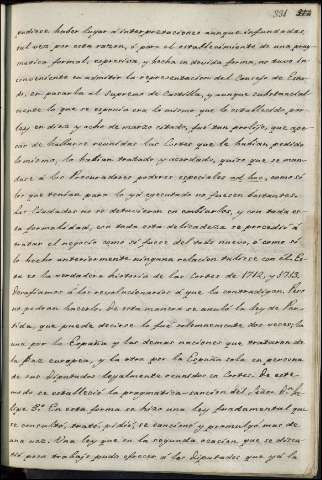 331
pudiese haber lugar á interpretaciones aunque infundadas,
tal vez por esta razon, ó para el establecimiento de una prag-
matica formal, espresiva, y hecha en devida forma, no tuvo in-
conveniente en admitir la representacion del Consejo de Esta-
do, en pasarla al Supremo de Castilla, y aunque substancial-
mente lo que se esponia era lo mismo que lo establecido por
ley en diez y ocho de marzo citado, fué tan prolijo, que ape-
sar de hallarse reunidas las Cortes que le habian pedido
lo mismo, lo habian tratado y acordado, quiso que se man-
dase á los Procuradores poderes especiales ad hoc, como si
los que tenian para lo ya ejecutado no fuesen bastantes.
Las Ciudades no se detuvieron en embiarlos, y con toda es-
ta formalidad, con toda esta delicadeza se procedió á
tratar el negocio como si fuese del todo nuevo, ó como si
lo hecho anteriormente ninguna relacion tubiese con él. Es-
ta es la verdadera historia de las Cortes de 1712, y 1713.
Desafiamos á los revolucionarios á que la contradigan. Pero
no podran hacerlo. De esta manera se anuló la ley de Par-
tida, que puede decirse lo fué solemnemente dos veces; la
una por la España y las demas naciones que trataron de
la Paz europea, y la otra por la España sola en persona
de sus Diputados legalmente reunidos en Cortes. De este
modo se estableció la pragmatica-sancion del Señor Dn. Fe-
lipe 5º. En esta forma se hizo una ley fundamental que
se consultó, trató, pidió, se sancionó y promulgó mas de
una vez. Una ley que en la segunda ocasion que se discu-
tió poco trabajo pudo ofrecer á los Diputados que ya la